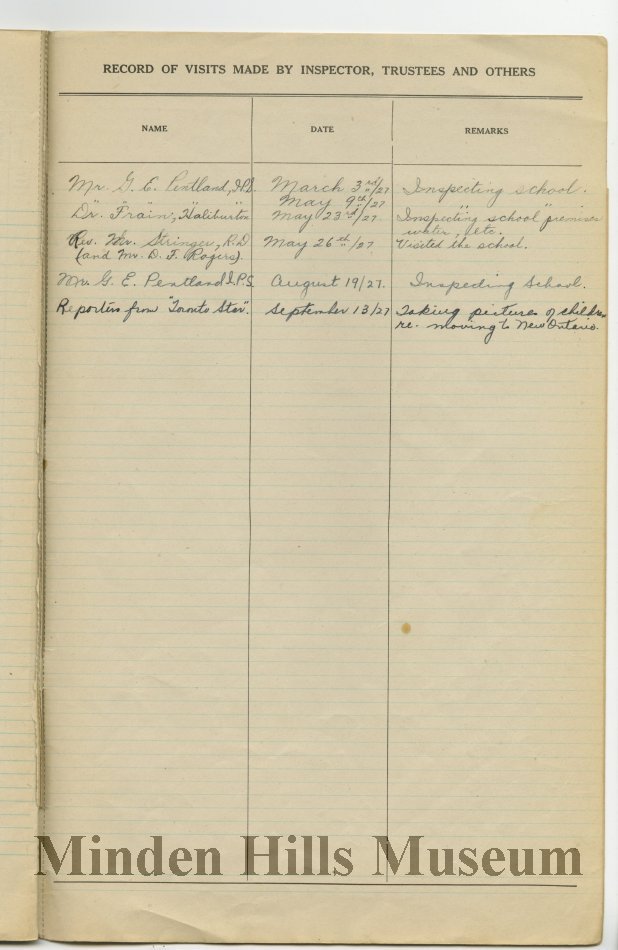 RECORD OF VISITS MADE BY INSPECTOR, TRUSTEES AND OTHERS
NAME DATE REMARKS
Mr. G. E. Pentland, I.P.S. March 3rd/27 Inspecting school.
" " " " May 9th/27 " "
Dr. Frain, Haliburton May 23rd/27. Inspecting school premises
water, etc.
Rev. Mr. Stringer, R.D. May 26th/27 Visited the school.
(and Mr. D. F. Rogers).
Mr. G. E. Pentland I.P.S. August 19/27. Inspecting School.
Reporters from "Toronto Star". September 13/27 Taking pictures of children
re- moving to New Ontario.
Minden Hills Museum